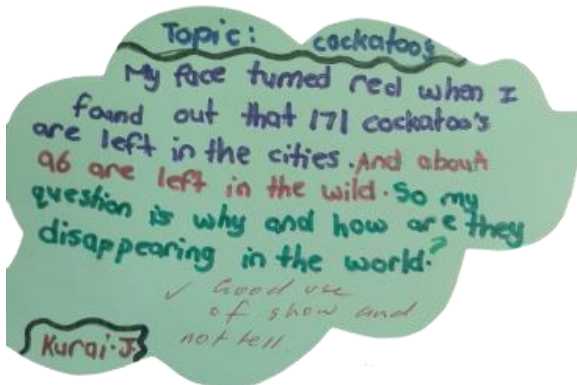 Topic: cockatoos
My face turned red when I
found out that 171 cockatoo's
are left in the cities. And about
96 are left in the wild. So my
question is why and how are they
disappearing in the world.
✓ Good use
of show and
not tell.
Kurai. J.